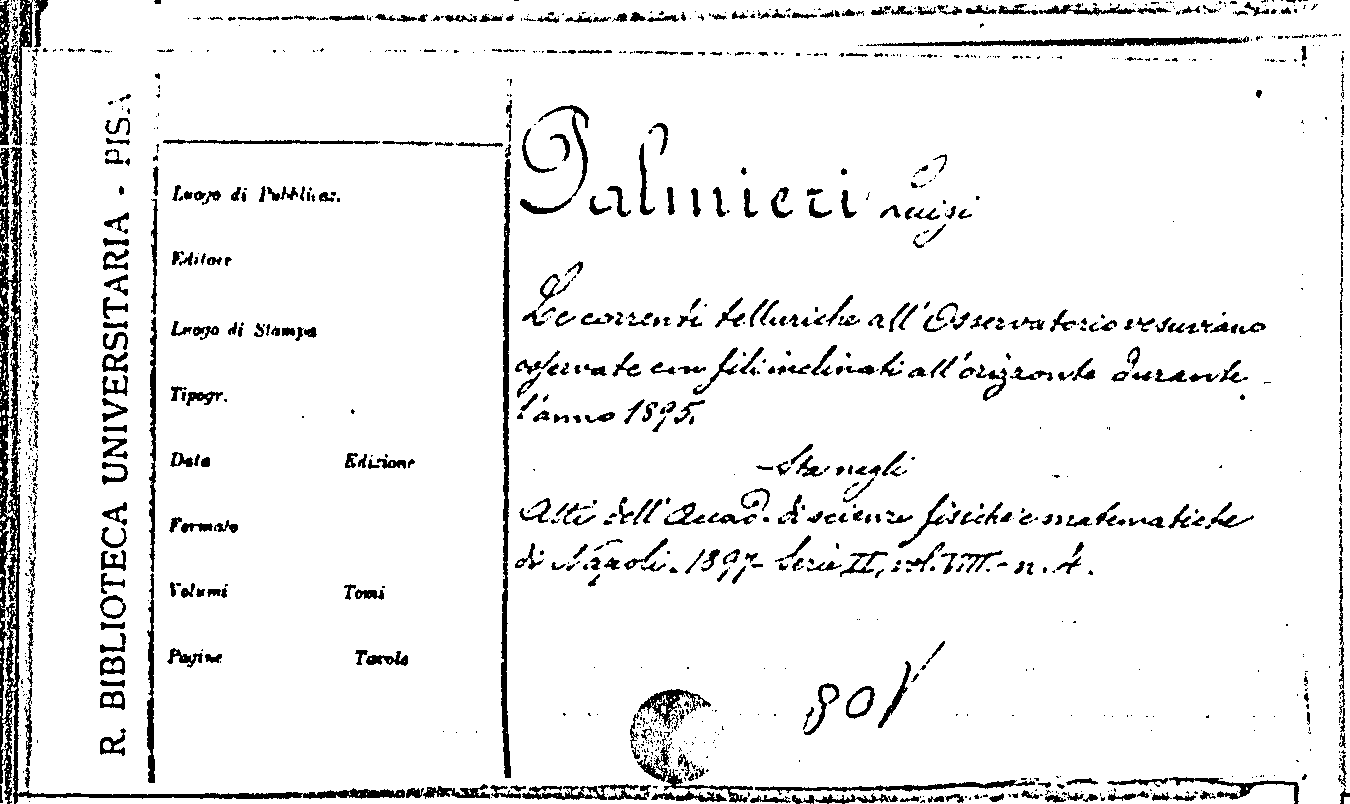 R. BIBLIOTECA UNIVERSITARIA - PISA
Luogo di Pubblicaz.
Editore
Luogo di Stampa
Tipogr.
Data Edizione
Formato
Volumi Tomi
Pagine Tavole
Palmieri Luigi
Le correnti telluriche all'Osservatorio vesuviano
osservate con fili inclinati all'orizzonte durante
l'anno 1895.
Sta negli
Atti dell'Accad. di scienze fisiche e matematiche
di Napoli. 1897 Serie II, vol. VIII. - n. 4.